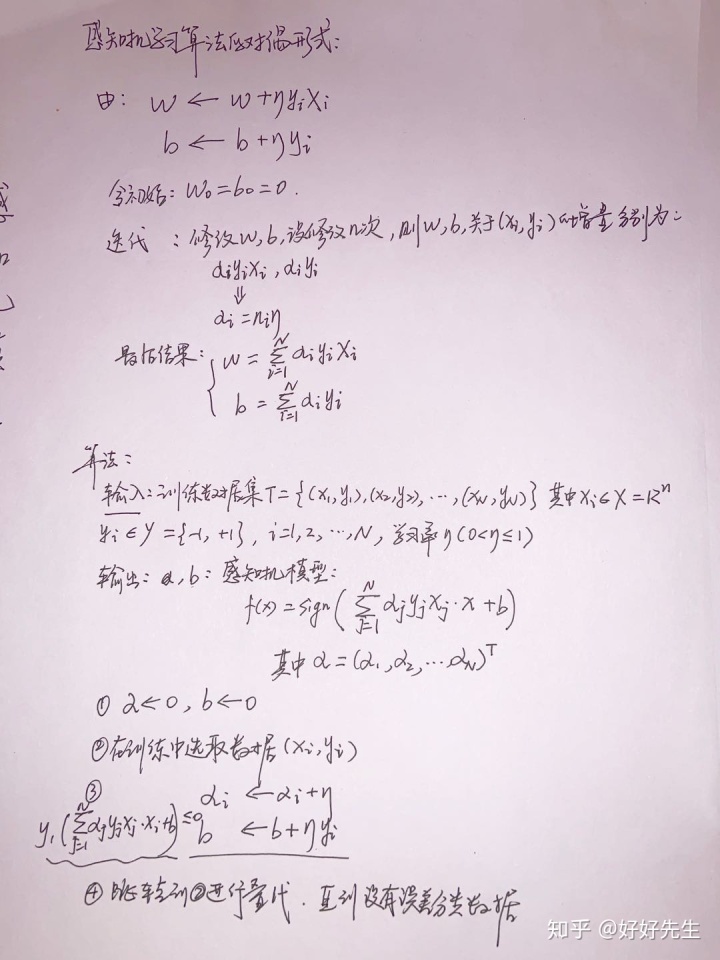 感知机学习算法的对偶形式:
由: w ← w+ηyᵢxᵢ
b ← b+ηyᵢ
令初始: w₀=b₀=0.
迭代 : 修改w,b,设修改n次,则w,b,关于(xᵢ,yᵢ)的增量分别为:
αᵢyᵢxᵢ, αᵢyᵢ
⇓
αᵢ=nᵢη
最后结果: { w = ∑ᵢ₌₁ᴺ αᵢyᵢxᵢ
b = ∑ᵢ₌₁ᴺ αᵢyᵢ
算法:
输入: 训练数据集T={(x₁,y₁),(x₂,y₂),…,(x_N,y_N)} 其中xᵢ∈X=Rⁿ
yᵢ∈Y={-1,+1}, i=1,2,…,N, 学习率η(0<η≤1)
输出: α,b; 感知机模型:
f(x)=sign(∑ⱼ₌₁ᴺ αⱼyⱼxⱼ·x+b)
其中α=(α₁,α₂,…,α_N)ᵀ
① α←0, b←0
②在训练中选取数据(xᵢ,yᵢ)
③
yᵢ(∑ⱼ₌₁ᴺ αⱼyⱼxⱼ·xᵢ+b)≤0 αᵢ ←αᵢ+η
b ←b+ηyᵢ
④ 跳转到②进行叠代. 直到没有误差分类数据
知乎 @好好先生
感
知